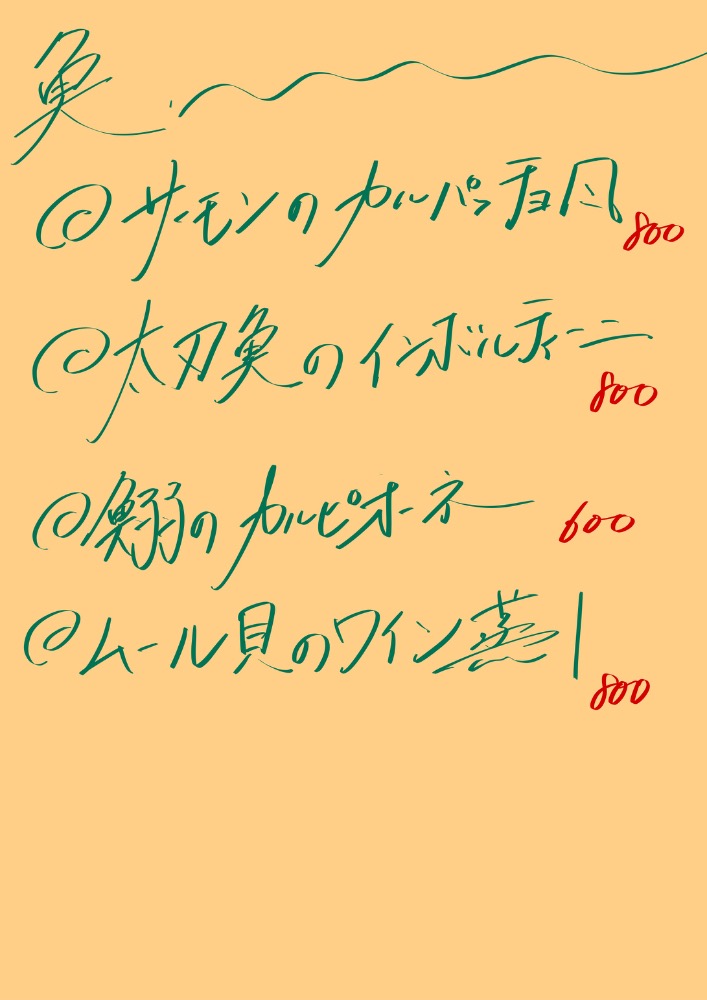 魚
@サーモンのカルパッチョ風
800
@太刀魚のインボルティーニ
800
@鰯のカルピオーネ 600
@ムール貝のワイン蒸し
800